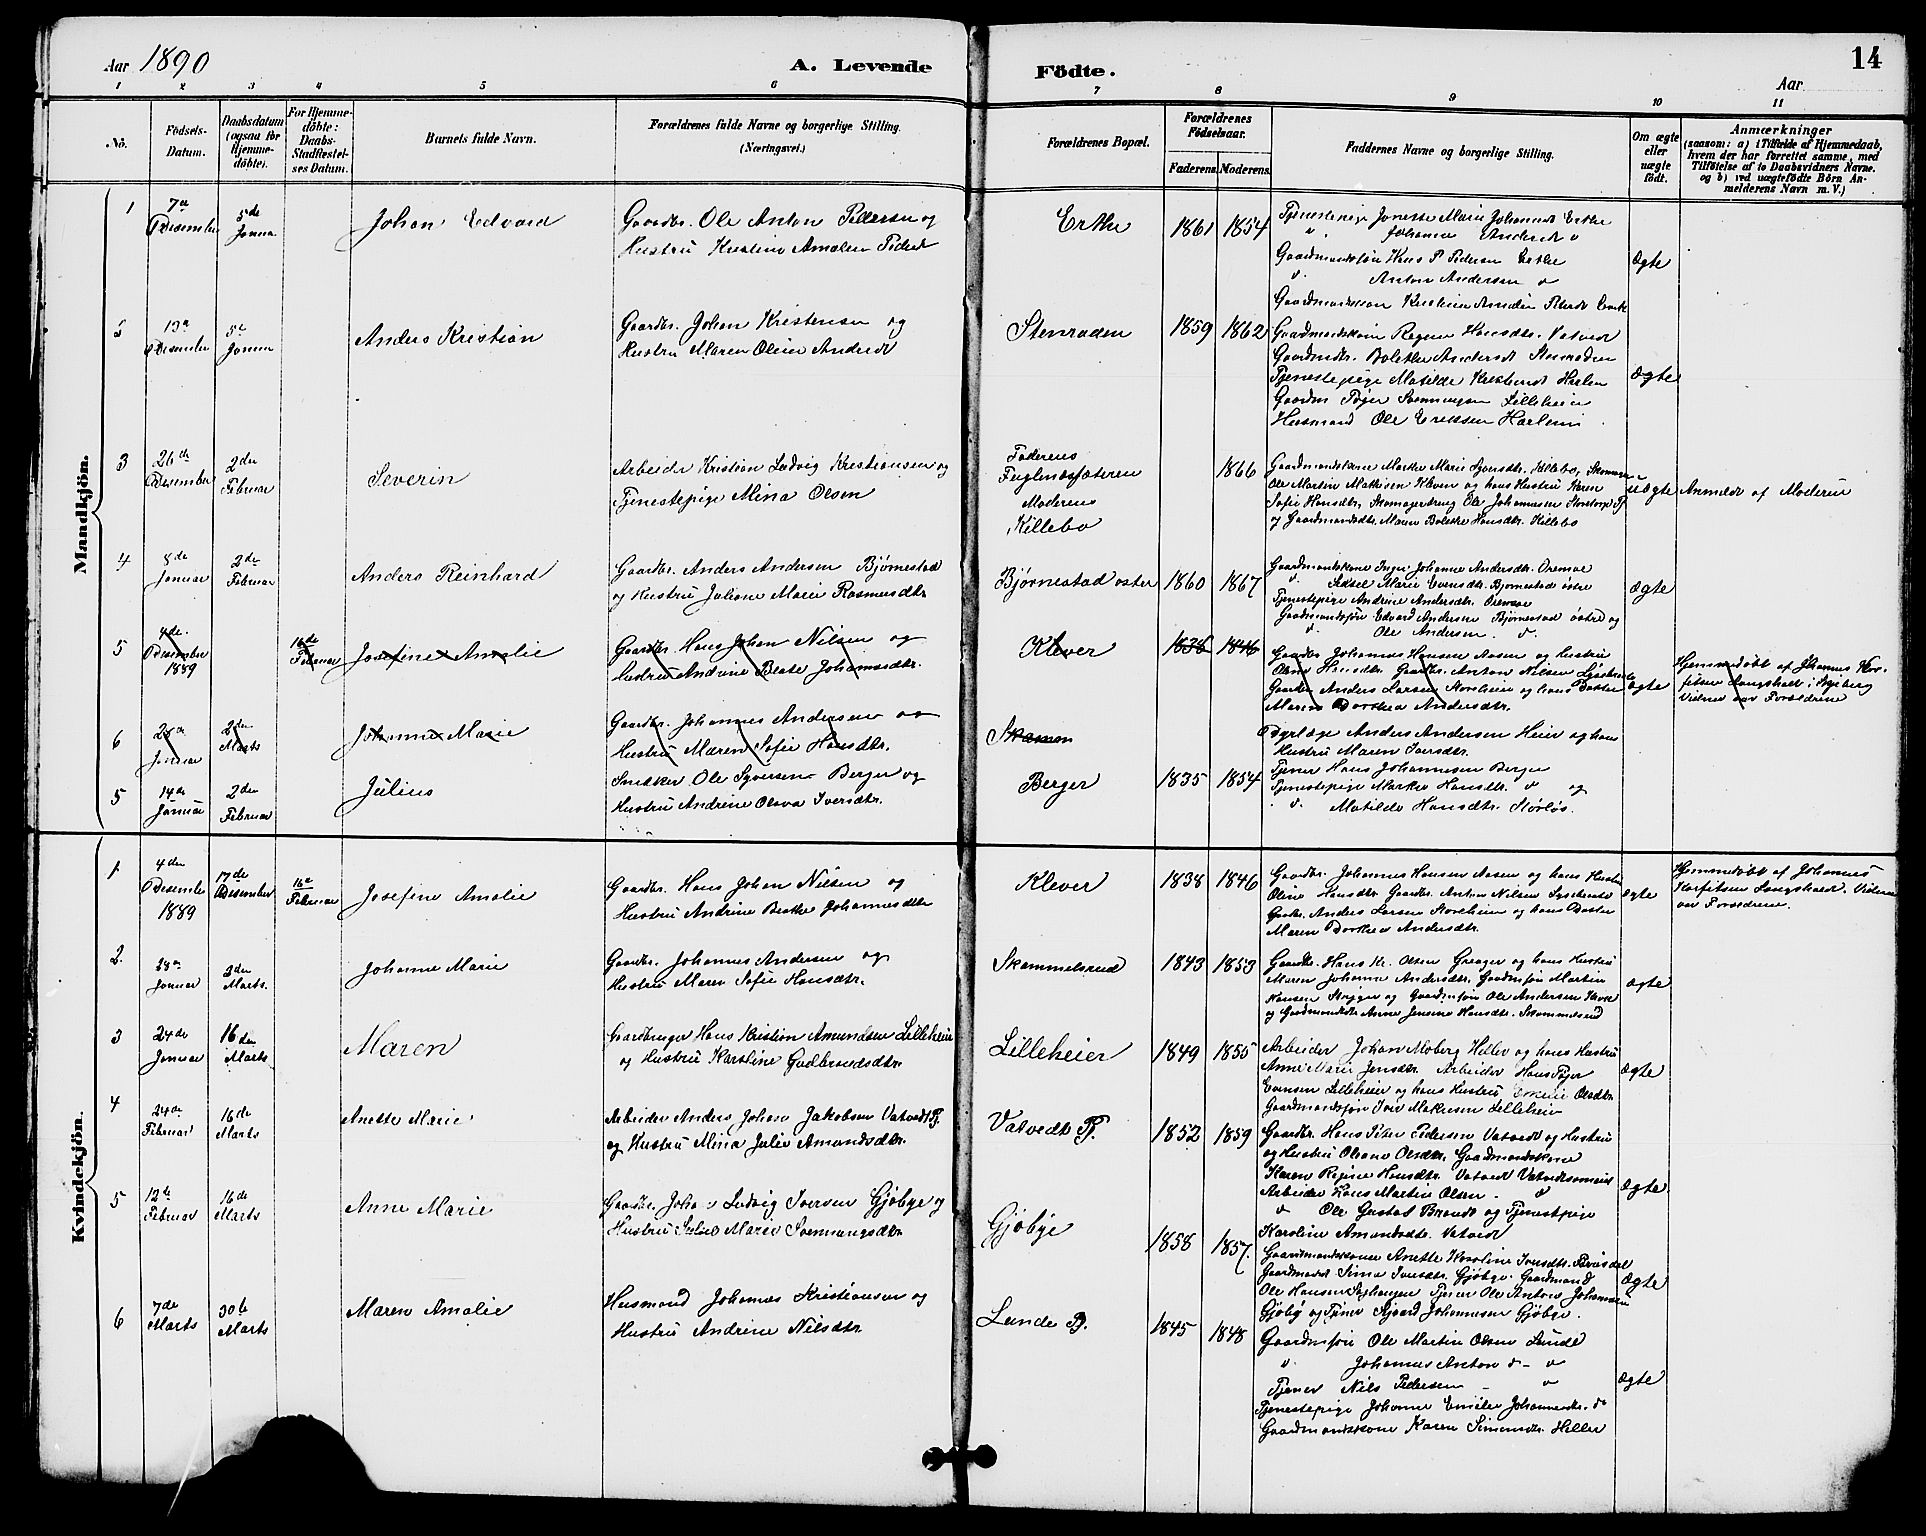 Aar 1890
A. Levende Födte.
14
Aar
1 2 3 4 5 6 7 8 9 10 11
No.
Födsels-Datum.
Daabsdatum (ogsaa for Hjemme-döbte).
For Hjemme-döbte: Daabs-Stadfæstel-ses Datum.
Barnets fulde Navn.
Forældrenes fulde Navne og borgerlige Stilling.
(Næringsvei.)
Forældrenes Bopæl.
Forældrenes Födselsaar.
Faderens. Moderens.
Faddernes Navne og borgerlige Stilling.
Om ægte eller uægte født.
Anmærkninger
(saasom: a) i Tilfælde af Hjemmedaab,
hvem der har forrettet samme, med
Tilföielse af to Daabsvidners Navne.
og b) ved uægtefödte Börn An-
melderens Navn m. V.)
Mandkjön.
1 7de Desember 5de Janua
Johan Edvard
Gaardbr. Ole Anton Pedersen og
Hustru Kristine Amalie Pedersd
Erthe 1861 1854
Tjenestepige Jonette Marie Johannesd Erthe
" Johanne Andersd "
Gaardmandssøn Hans P. Pedersen Erthe
" Anton Andersen "
Ægte
2 13de Desember 5te Janua
Anders Kristian
Gaardbr. Johan Kristensen og
Hustru Maren Oline Andersd
Stenroden 1859 1862
Gaardmandskone Regine Hansdtr. Vatvedt
Gaardmdtr. Bolethe Andersdt Stenroden
Tjenestepige Matilde Kristensdt
Husmand Ole Eriksen
Ægte
3 26de Desember 2den Februar
Severin
Arbeider Kristian Ludvig Kristiansen og
Tjenestepige Mina Olsen
Faderens
Fuglenesfæteren
Moderens
Killebo
1866
Gaardmandskone Marthe Marie Syversdtr. Killebo,
Ole Martin Mathisen Kleven og hans Hustru Karen
Sofie Hansdtr, Skomagerdreng Ole Johannesen Storetorp Pl
og Gaardmandsdtr. Maren Bolethe Hansdtr. Killebo
uægte
Anmeldt af Moderen
4 8de Januar 2den Februar
Anders Reinhard
Gaardbr. Anders Andersen Bjørnestad
og Hustru Juliane Marie Rasmusdtr
Bjørnestad øster 1860 1867
Gaardmandskone Inger Johanne Andersdtr.
" Sidsel Marie Evensdtr. Bjørnestad østre
Tjenestepige Andrine Andersdtr.
Gaardmandssøn Edvard Andersen Bjørnestad østre og
" Ole Andersen. d.
Ægte
5 4de Desember 1889 16de Februar
Josefine Amalie
Gaardbr. Hans Johan Nilsen og
Hustru Andrine Beate Johannesdtr.
Klever 1838 1846
Gaardbr Johannes Hansen Aasen og Hustru
Oline Hansdtr. Gaardbr. Anton Nilsen
Gaardbr Anders Larsen Storeheier og hans Datter
Maren Dorthea Andersdtr.
Ægte
Hjemmedøbt af Johannes
Langsholt i
Vidner var Forældrene
6 28de Januar 2den Marts
Johanne Marie
Gaardbr. Johannes Andersen og
Hustru Maren Sofie Hansdtr.
Skamm
5 14de Januar 2den Februar
Julius
Snedker Ole Syversen Berger og
Hustru Andrine Olava Iversdtr.
Berger 1835 1854
Dyrlæge Anders Andersen Heier og hans
Hustru Maren Iversdtr.
Tjener Hans Johannesen Berger
Tjenestepige Marthe Hansdtr. " og
" d. Matilde Hansdtr. Storløs.
Kvindekjön.
1 4den Desember 1889 17de Desember 16de Februar
Josefine Amalie
Gaardbr. Hans Johan Nilsen og
Hustru Andrine Beathe Johannesdtr
Klever 1838 1846
Gaardbr. Johannes Hansen Aasen og hans Hustru
Oline Hansdtr. Gaardbr. Anton Nilsen
Gaardbr. Anders Larsen Storeheier og hans Datter
Maren Dorthea Andersdtr.
Ægte
Hjemmedøbt af Johannes
Langsholt. Vidnere
var Forældrene.
2. 28de Januar 2den Marts.
Johanne Marie
Gaardbr. Johannes Andersen og
Hustru Maren Sofie Hansdtr.
Skammelsrud 1843 1853
Gaardbr. Hans Kr. Olsen Grenger og hans Hustru
Maren Johanne Andersdtr. Gaardmsøn Martin
Hansen og Gaardmsøn Ole Andersen
og Gaardmandsdtr Anne Jensine Hansdtr. Skammelsrud
Ægte
3 24de Januar 16den Marts.
Maren
Gaardbruger Hans Kristian Amundsen Lilleheier
og Hustru Karoline Gudbrandsdtr.
Lilleheier 1849 1855
Arbeider Johan Moberg Heller og hans Hustru
Anne Marie Jensdtr. Arbeider Hans Peter
Evensen Lilleheier og hans Hustru Olsdtr
Gaardmandssøn Iver Mathisen Lilleheier
Ægte
4 24de Februar 16de Marts
Anette Marie
Arbeider Anders Johan Jakobsen Vatvedt Pl.
og Hustru Mina Julie Amundsdtr.
Vatvedt Pl. 1852 1859
Gaardbr. Hans Peter Pedersen Vatvedt og Hustru
og Hustru Oleane Olsdtr. Gaardmandskone
Karen Regine Hansdtr. Vatvedt
Arbeider Hans Martin Olsen. d
" Ole Gustad Brandt og Tjenestpige
Karoline Amundsdtr. Vatvedt
Ægte
5 12te Februar 16de Marts
Anne Marie
Gaardbr. Johan Ludvig Iversen Gjøbye og
Hustru Marie Svenningsdtr
Gjøbye 1858 1857.
Gaardmandskone Anette Karoline Iversdtr.
Gaardmandsdtr Sina Iversdtr. Gjøbye. Gaardmand
Ole Hansen Tjener Ole Anton Johannesen
Gjøby og Tjener Sigvard Johannesen Gjøbye.
Ægte
6 7de Marts 30te Marts
Maren Amalie
Husmand Johannes Kristiansen og
Hustru Andrine Nilsdtr.
Lunde Pl. 1845 1848
Gaardmsøn Ole Martin Olsen Lunde
" Johannes Anton d- "
Tjener Nils Pedersen "
Tjenestepige Johanne Emilie Johannesdtr. d
Gaardmandskone Karen Simensdtr. Heller
Ægte